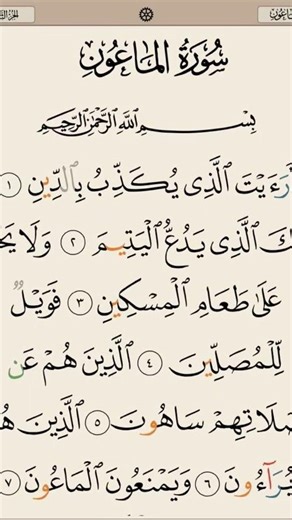 سُورَةُ المَاعُونِ
بِسْمِ ٱللَّهِ ٱلرَّحْمَٰنِ ٱلرَّحِيمِ
رَءَيْتَ ٱلَّذِى يُكَذِّبُ بِٱلدِّينِ ١
كَ ٱلَّذِى يَدُعُّ ٱلْيَتِيمَ ٢ وَلَا يَحُ
عَلَىٰ طَعَامِ ٱلْمِسْكِينِ ٣ فَوَيْلٌ
لِّلْمُصَلِّينَ ٤ ٱلَّذِينَ هُمْ عَن
صَلَاتِهِمْ سَاهُونَ ٥ ٱلَّذِينَ هُ
يُرَآءُونَ ٦ وَيَمْنَعُونَ ٱلْمَاعُونَ ٧